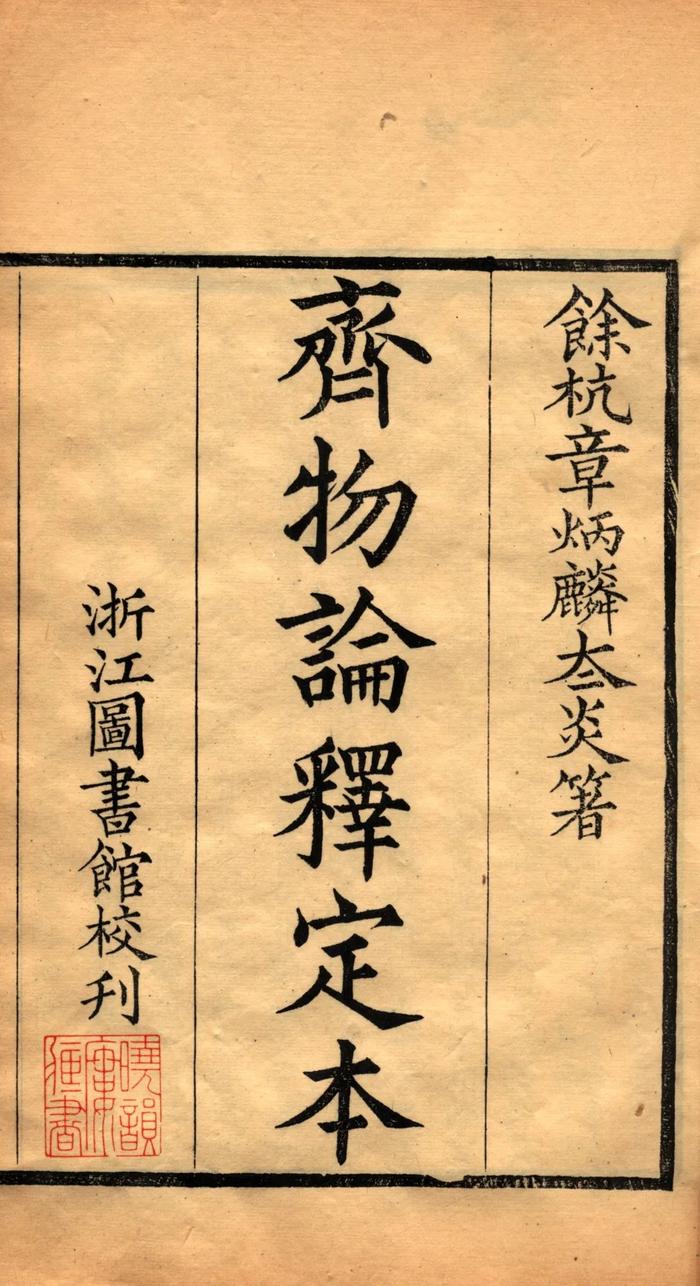 餘杭章炳麟夳炎箸
齊物論釋定本
浙江圖書館校刋
曉韻